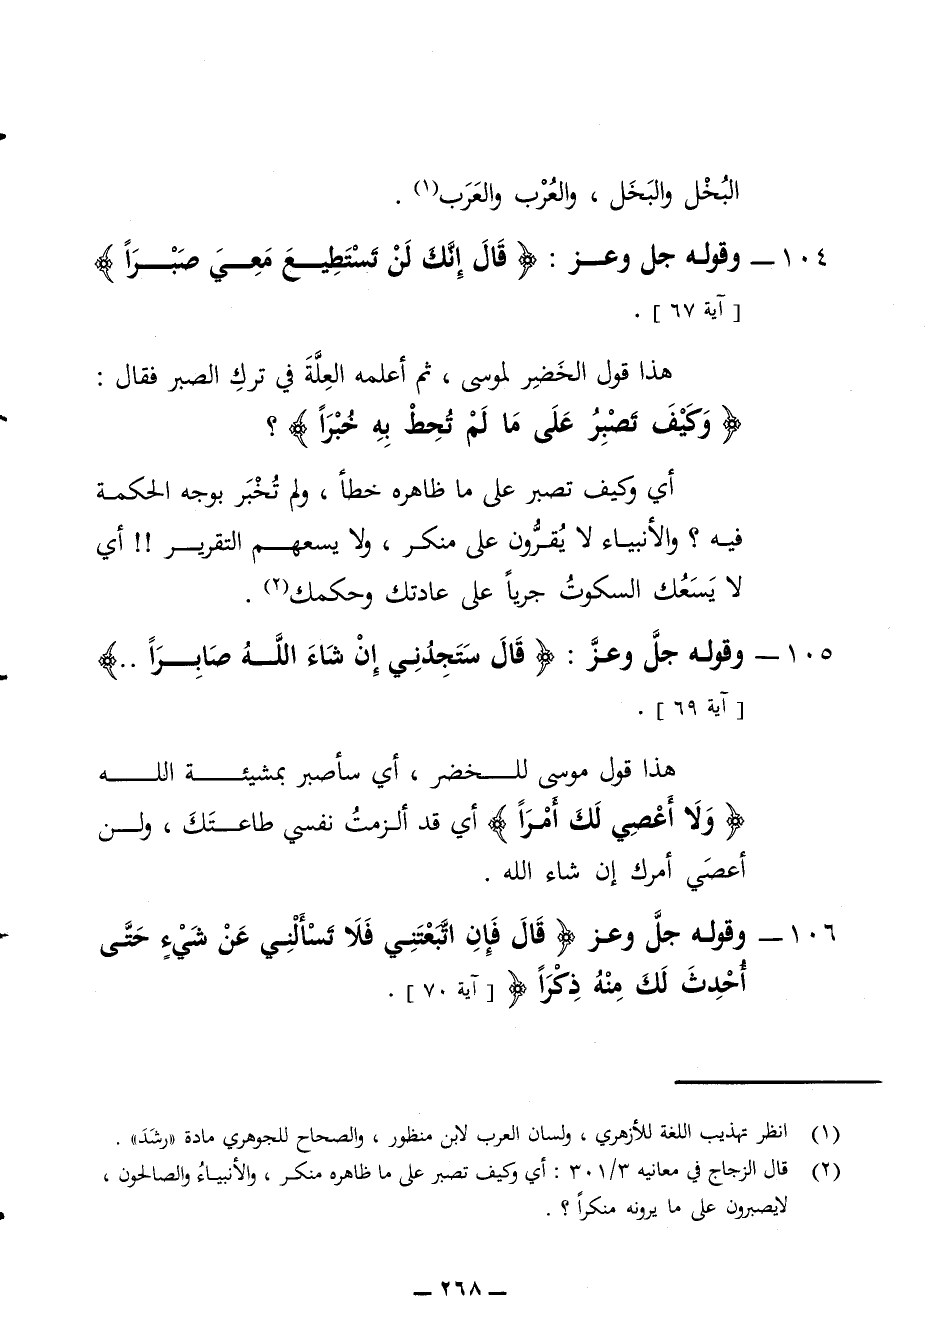 البُخْل والبَخَل ، والعُرْب والعَرَب(١) .
١٠٤ ــ وقوله جل وعــز : ﴿ قَالَ إِنَّكَ لَنْ تَسْتَطِيـعَ مَعِـيَ صَبْـراً ﴾
[ آية ٦٧ ] .
هذا قول الخَضِر لموسى ، ثم أعلمه العِلَّةَ في تركِ الصبر فقال :
﴿ وَكَيْفَ تَصْبِرُ عَلَى مَا لَمْ تُحِطْ بِهِ خُبْرَاً ﴾ ؟
أي وكيف تصبر على ما ظاهره خطأ ، ولم تُخْبَر بوجه الحكمة
فيه ؟ والأنبيـاء لا يُقـرُّون على منكـر ، ولا يسعهـم التقريـر !! أي
لا يَسَعُك السكوتُ جرياً على عادتك وحكمك(٢) .
١٠٥ ــ وقولـه جلَّ وعـزَّ : ﴿ قَالَ سَتَجِدُنِـي إِنْ شَاءَ اللَّـهُ صَابِـرَاً ..﴾
[ آية ٦٩ ] .
هذا قول موسى للـخضر ، أي سأصبر بمشيئـة اللـه
﴿ وَلَا أَعْصِي لَكَ أَمْرَاً ﴾ أي قد ألـزمتُ نفسي طاعـتَكَ ، ولـن
أعصَي أمرك إن شاء الله .
١٠٦ ــ وقولـه جلَّ وعـز ﴿ قَالَ فَإِنِ اتَّبَعْتَنِي فَلَا تَسْأَلْنِي عَنْ شَيْءٍ حَتَّى
أُحْدِثَ لَكَ مِنْهُ ذِكْرَاً ﴾ [ آية ٧٠ ] .
(١) انظر تهذيب اللغة للأزهري ، ولسان العرب لابن منظور ، والصحاح للجوهري مادة «رشَدَ» .
(٢) قال الزجاج في معانيه ٣٠١/٣ : أي وكيف تصبر على ما ظاهره منكـر ، والأنبيـاءُ والصالحون ،
لايصبرون على ما يرونه منكراً ؟ .
ــ ٢٦٨ ــ